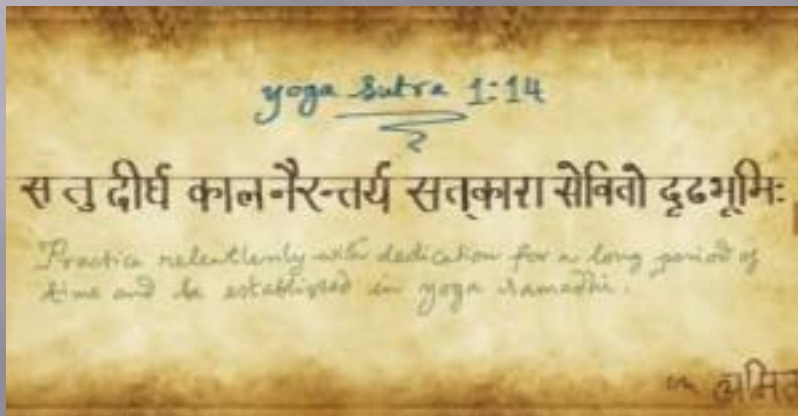 yoga sutra 1:14
स तु दीर्घ काल नैरन्तर्य सत्कारा सेवितो दृढभूमिः
Practice relentlessly with dedication for a long period of
time and be established in yoga samadhi.